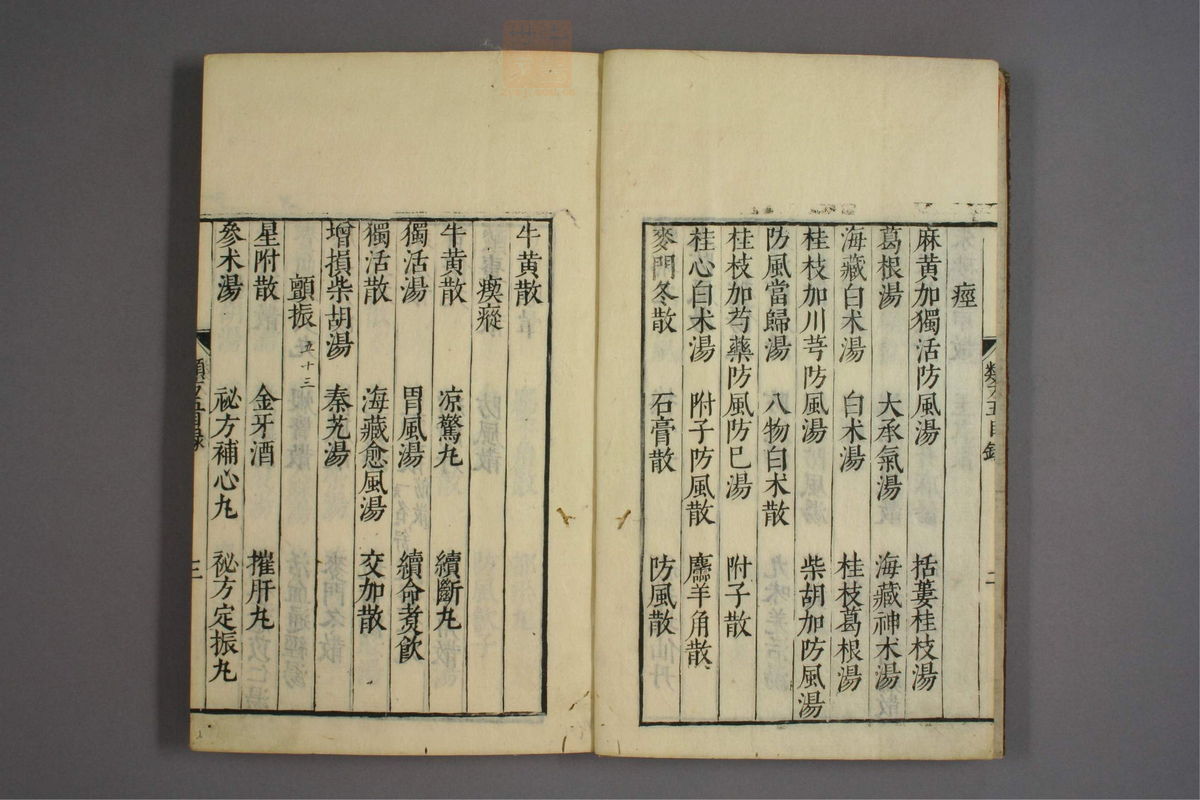 痙
麻黃加獨活防風湯 括蔞桂枝湯
葛根湯 大承氣湯 海藏神术湯
海藏白术湯 白术湯 桂枝葛根湯
桂枝加川芎防風湯 柴胡加防風湯
防風當歸湯 八物白术散
桂枝加芍藥防風防巳湯 附子散
桂心白术湯 附子防風散 麢羊角散
麥門冬散 石膏散 防風散
類方五目錄 二
牛黃散
瘈瘲
牛黃散 凉驚丸 續斷丸
獨活湯 胃風湯 續命煮飲
獨活散 海藏愈風湯 交加散
增損柴胡湯 秦艽湯
顫振 五十三
星附散 金牙酒 摧肝丸
參术湯 祕方補心丸 祕方定振丸
類方五目錄 三